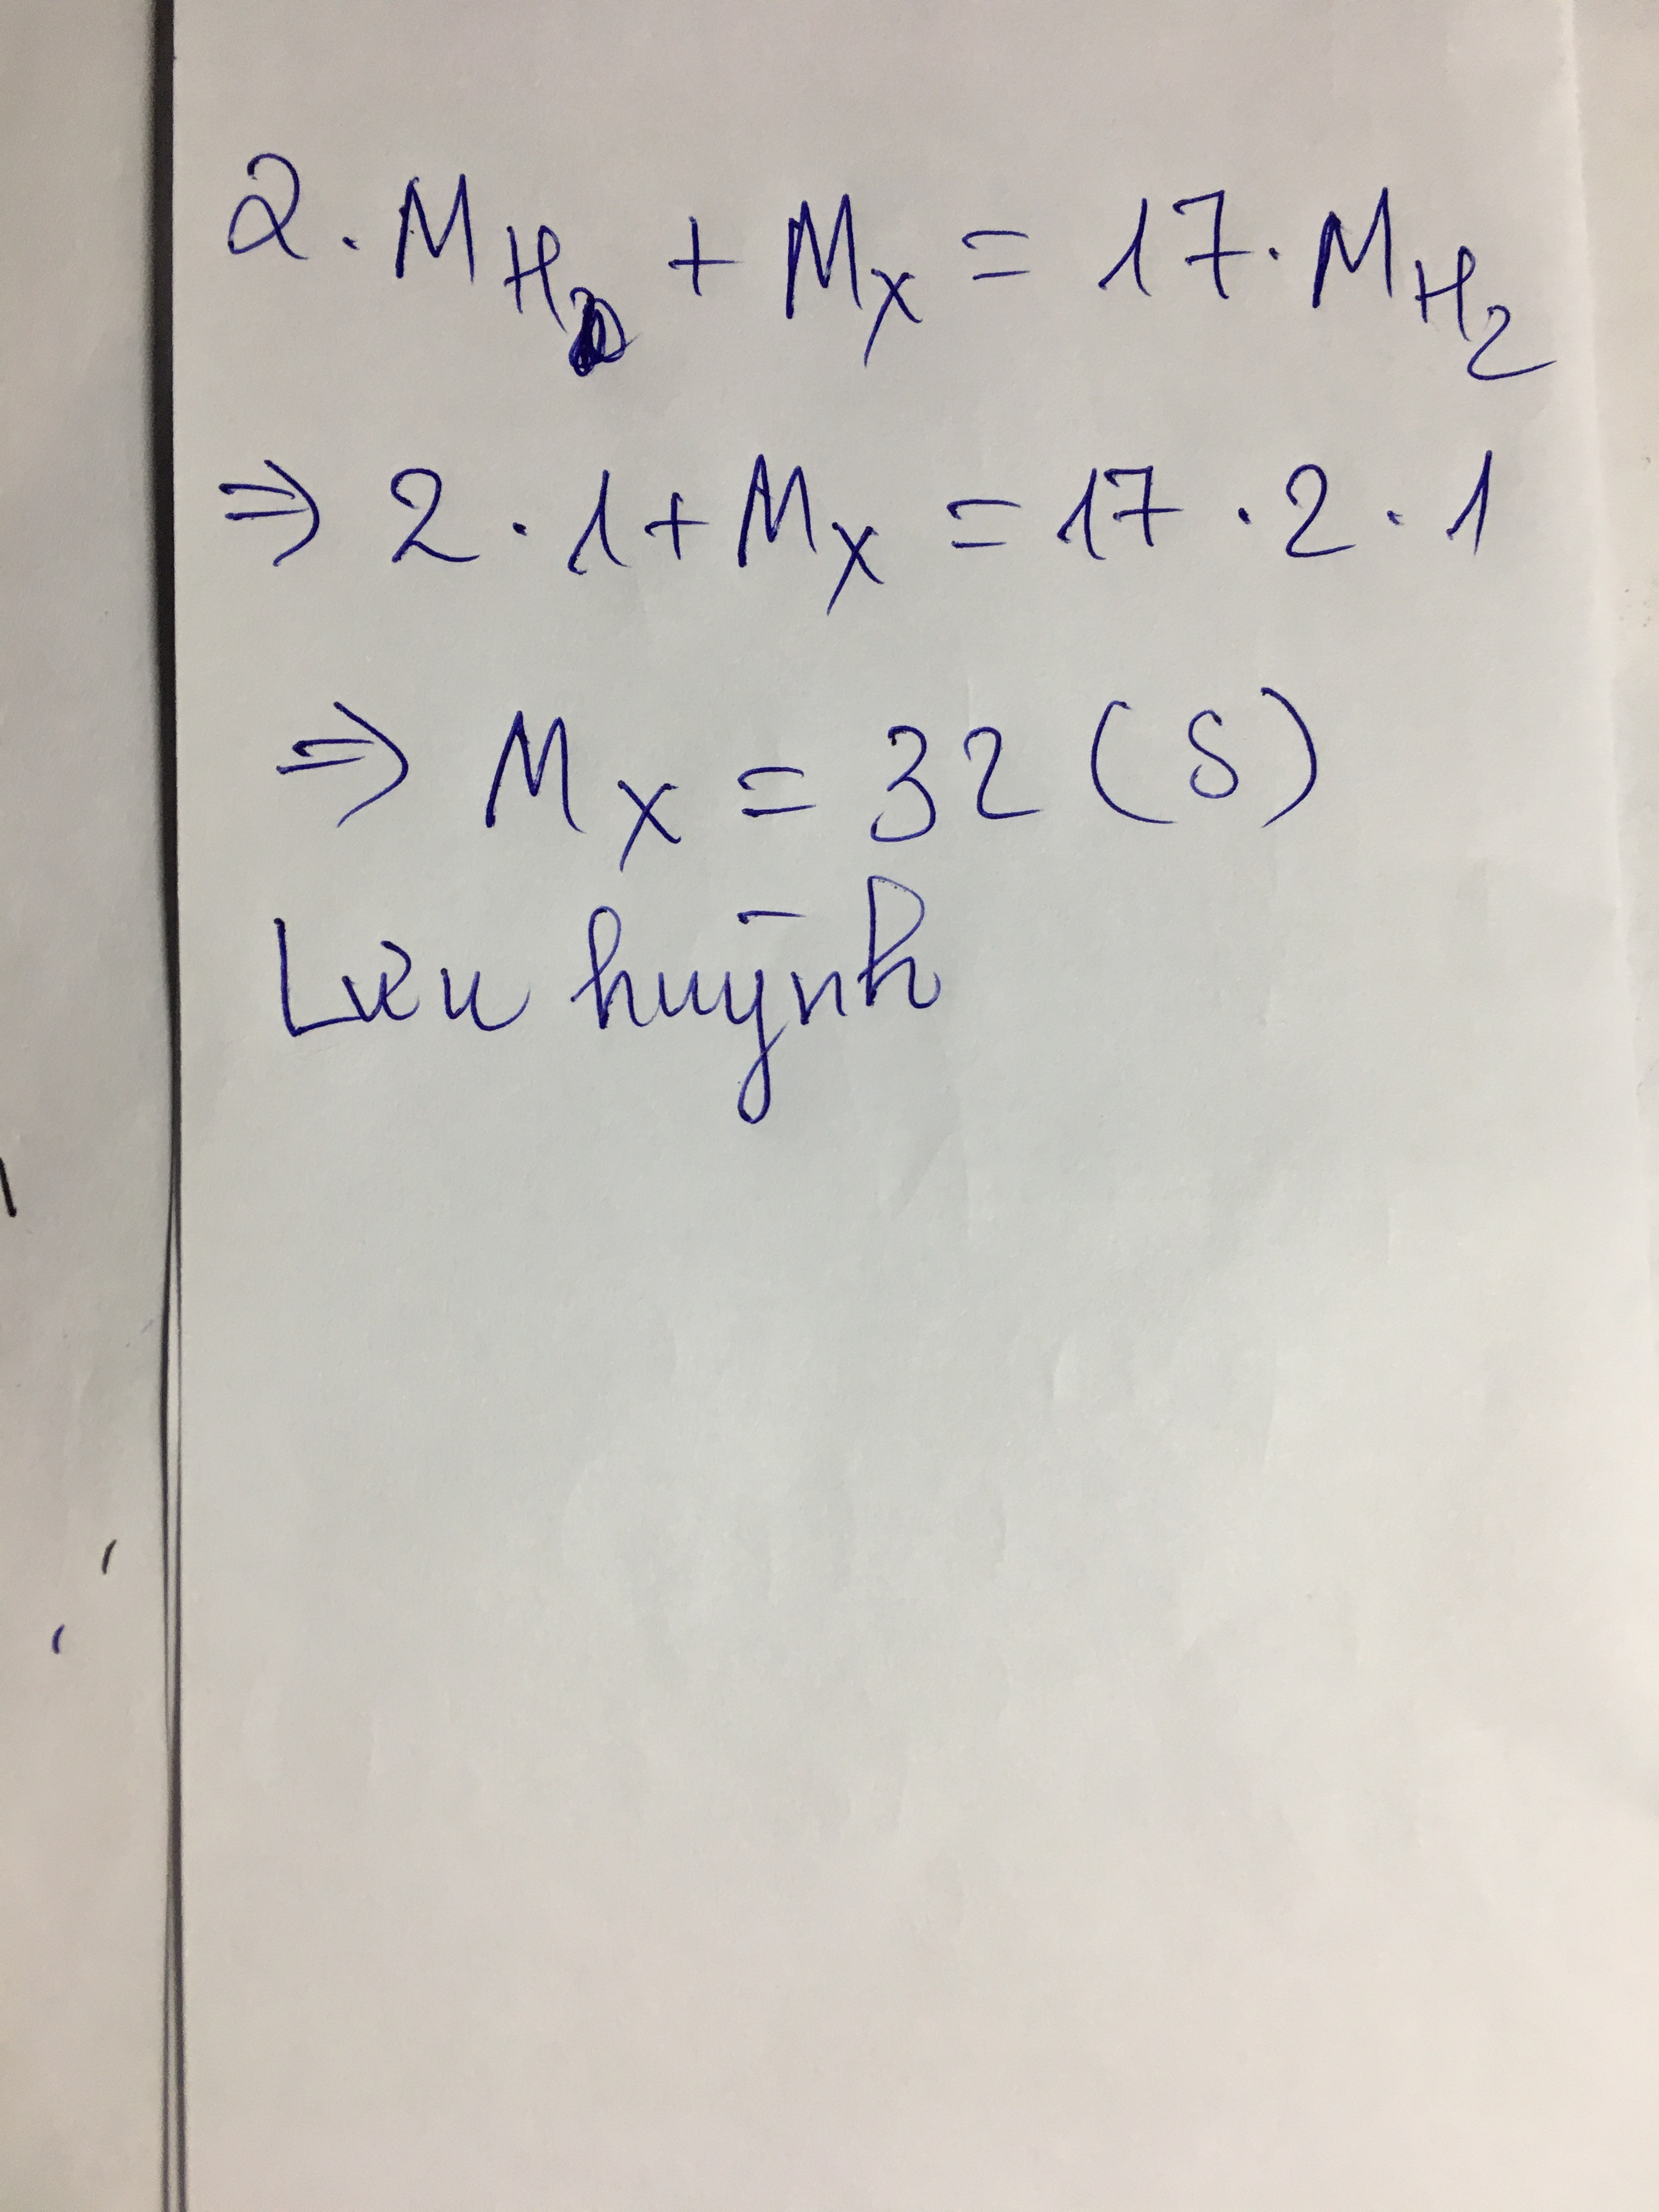 2 . M_H + M_X = 17 . M_H₂
⇒ 2 . 1 + M_X = 17 . 2 . 1
⇒ M_X = 32 (S)
Lưu huỳnh